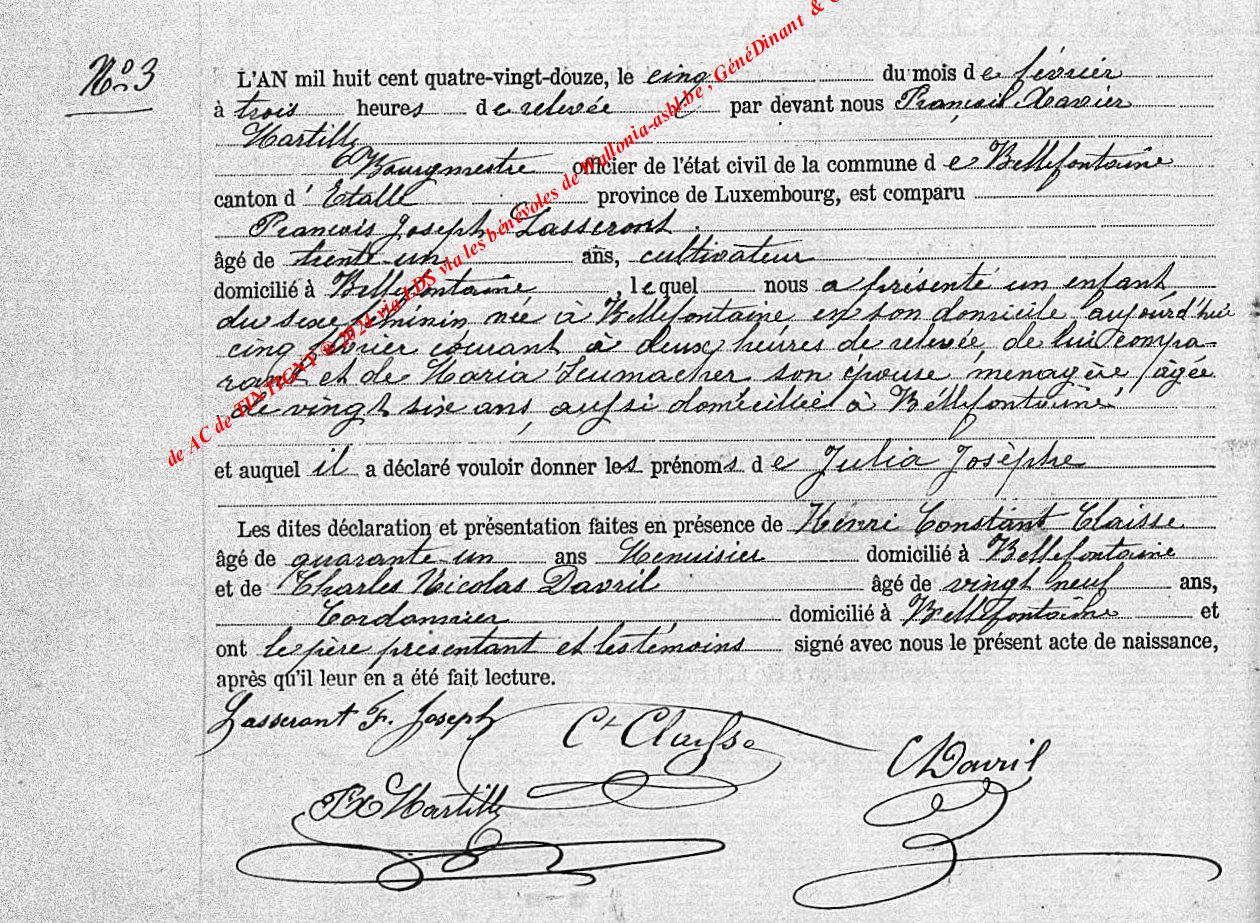 N° 3
L'AN mil huit cent quatre-vingt-douze, le cinq du mois de février
à trois heures de relevée par devant nous François Xavier
Martilly
Bourgmestre officier de l'état civil de la commune de Bellefontaine
canton d'Etalle province de Luxembourg, est comparu
François Joseph Lasseront
âgé de trente un ans, cultivateur
domicilié à Bellefontaine, lequel nous a présenté un enfant
du sexe féminin née à Bellefontaine en son domicile aujourd'hui
cinq février courant à deux heures de relevée, de lui compa-
rant et de Maria Scumacher son épouse, menagère, âgée
de vingt six ans, aussi domiciliée à Bellefontaine
et auquel il a déclaré vouloir donner les prénoms de Julia Josèphe
Les dites déclaration et présentation faites en présence de Henri Constant Claisse
âgé de quarante un ans Menuisier domicilié à Bellefontaine
et de Charles Nicolas Davril âgé de vingt neuf ans,
Cordonnier domicilié à Bellefontaine et
ont le père présentant et les témoins signé avec nous le présent acte de naissance,
après qu'il leur en a été fait lecture.
Lasseront F. Joseph
Ct Claisse
CDavril
FX Martilly
de AC de TINTIGNY © 2024 via LDS via les bénévoles de Wallonia-asbl.be , GénéDinant &